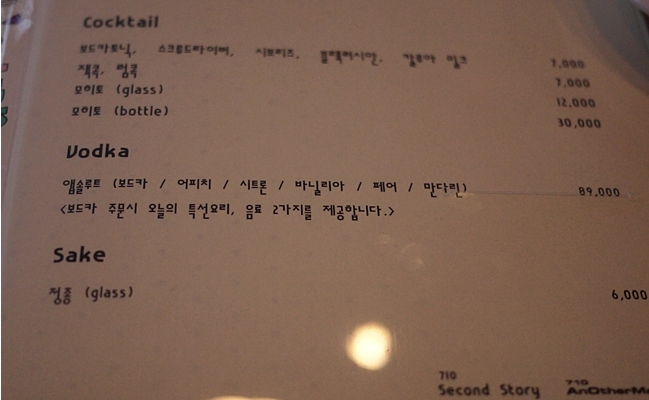 Cocktail
보드카토닉, 스크류드라이버, 시브리즈, 블랙러시안, 깔루아 밀크 7,000
잭콕, 럼콕 7,000
모히토 (glass) 12,000
모히토 (bottle) 30,000
Vodka
앱솔루트 (보드카 / 어피치 / 시트론 / 바닐리아 / 페어 / 만다린) 89,000
<보드카 주문시 오늘의 특선요리, 음료 2가지를 제공합니다.>
Sake
정종 (glass) 6,000
710 710
Second Story AnOtherMe